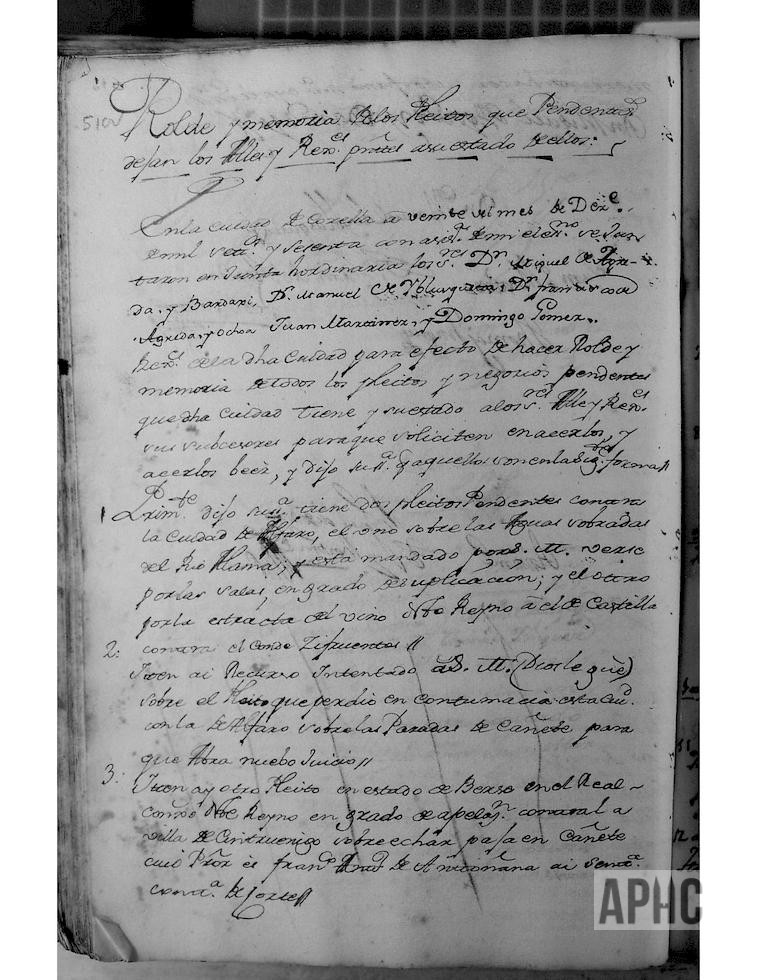 510v
Rolde y memoria de los Pleitos que Pendentes
desan los Alle y Rex.es pntes asu estado de ellos:
En la ciudad de Corella a veinte seis mes de Dez.e
de mil set.s y sesenta con asis.a de mi el es.no se Jun
taron en Junta hordinaria los S.res D.n Miguel de
da, y Bardaxi, D.n Manuel de D.n fran.co
Agreda, y ochoa Juan Martinez, y Domingo Gomez.
Rex.es de la dha Ciudad para efecto de hacer Rolde y
memoria de todos los pleitos y negozios pendentes
que dha Ciudad tiene y su estado a los S.res Alle y Rex.es
sus subcesores para que soliciten enacerlos, y
acerlos beer, y dijo su s.a q aquellos son en la sig.te forma //
1 Prim.te dijo su s.a tiene dos pleitos Pendentes contra
la Ciudad de Alfaro, el uno sobre las Aguas sobradas
del Rio Alama; y está mandado por S. M. verse
por las salas, en grado de suplicacion; y el otro
por la estracta del vino de Nro Reyno á el de Castilla
contra el Conde Zifuentes //
2: Iten ai Recurso Intentado á S. M. (Dios le gûe)
sobre el Pleito que perdio en contumacia esta Ciu.d
con la de Alfaro sobre las Paradas de Cañete para
que Abra nuebo Juicio //
3: Iten ay otro Pleito en estado de Berse en el Real
conso Nro Reyno en grado de apelaz.n contra la
villa de Cintruenigo sobre echar pasa en Cañete
cuio Pror es fran.co de Antoñana ai senta.
contra de Corte //
APHC